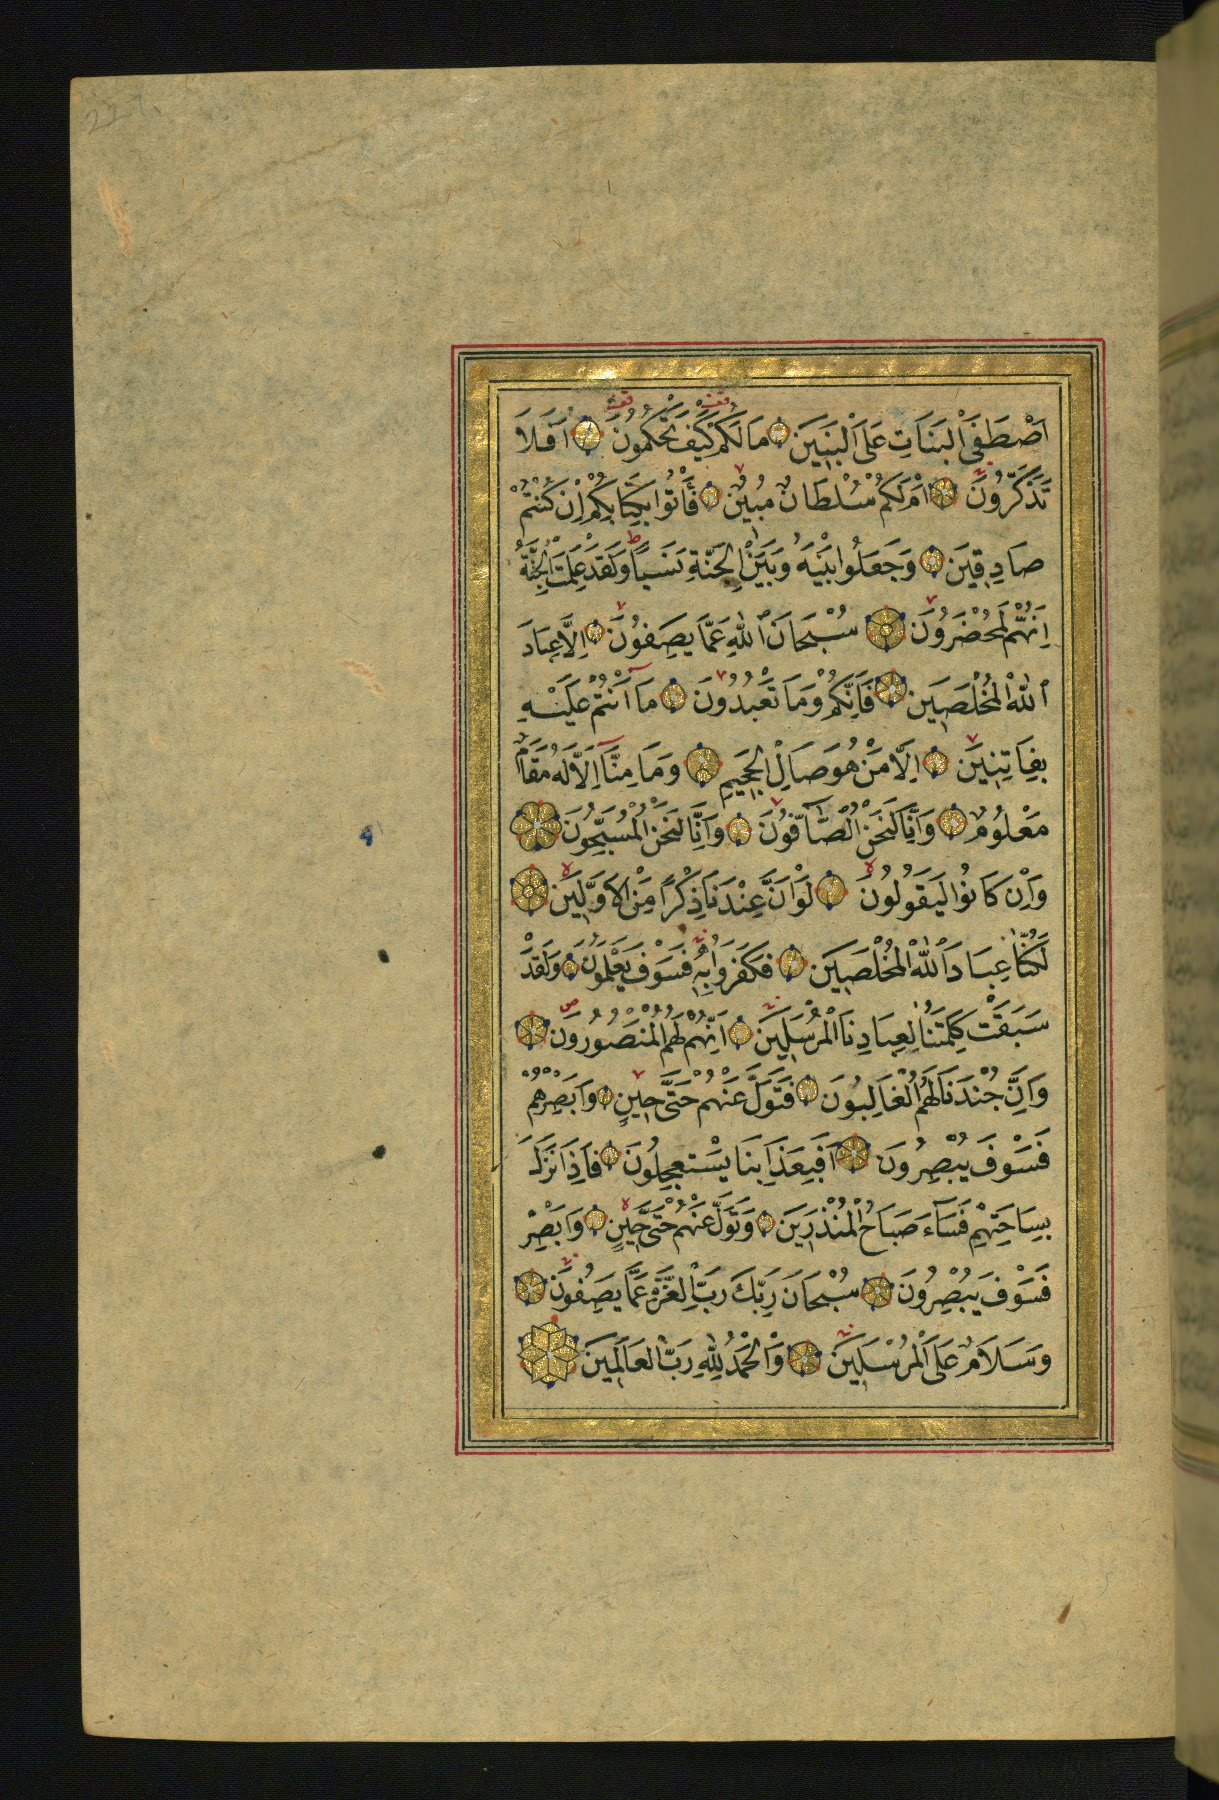 اَصْطَفَى الْبَنَاتِ عَلَى الْبَنِينَ مَا لَكُمْ كَيْفَ تَحْكُمُونَ اَفَلَا
تَذَكَّرُونَ اَمْ لَكُمْ سُلْطَانٌ مُبِينٌ فَأْتُوا بِكِتَابِكُمْ اِنْ كُنْتُمْ
صَادِقِينَ وَجَعَلُوا بَيْنَهُ وَبَيْنَ الْجِنَّةِ نَسَبًا وَلَقَدْ عَلِمَتِ الْجِنَّةُ
اِنَّهُمْ لَمُحْضَرُونَ سُبْحَانَ اللّٰهِ عَمَّا يَصِفُونَ اِلَّا عِبَادَ
اللّٰهِ الْمُخْلَصِينَ فَاِنَّكُمْ وَمَا تَعْبُدُونَ مَا اَنْتُمْ عَلَيْهِ
بِفَاتِنِينَ اِلَّا مَنْ هُوَ صَالِ الْجَحِيمِ وَمَا مِنَّا اِلَّا لَهُ مَقَامٌ
مَعْلُومٌ وَاِنَّا لَنَحْنُ الصَّافُّونَ وَاِنَّا لَنَحْنُ الْمُسَبِّحُونَ
وَاِنْ كَانُوا لَيَقُولُونَ لَوْ اَنَّ عِنْدَنَا ذِكْرًا مِنَ الْاَوَّلِينَ
لَكُنَّا عِبَادَ اللّٰهِ الْمُخْلَصِينَ فَكَفَرُوا بِهِ فَسَوْفَ يَعْلَمُونَ وَلَقَدْ
سَبَقَتْ كَلِمَتُنَا لِعِبَادِنَا الْمُرْسَلِينَ اِنَّهُمْ لَهُمُ الْمَنْصُورُونَ
وَاِنَّ جُنْدَنَا لَهُمُ الْغَالِبُونَ فَتَوَلَّ عَنْهُمْ حَتَّى حِينٍ وَاَبْصِرْهُمْ
فَسَوْفَ يُبْصِرُونَ اَفَبِعَذَابِنَا يَسْتَعْجِلُونَ فَاِذَا نَزَلَ
بِسَاحَتِهِمْ فَسَآءَ صَبَاحُ الْمُنْذَرِينَ وَتَوَلَّ عَنْهُمْ حَتَّى حِينٍ وَاَبْصِرْ
فَسَوْفَ يُبْصِرُونَ سُبْحَانَ رَبِّكَ رَبِّ الْعِزَّةِ عَمَّا يَصِفُونَ
وَسَلَامٌ عَلَى الْمُرْسَلِينَ وَالْحَمْدُ لِلّٰهِ رَبِّ الْعَالَمِينَ